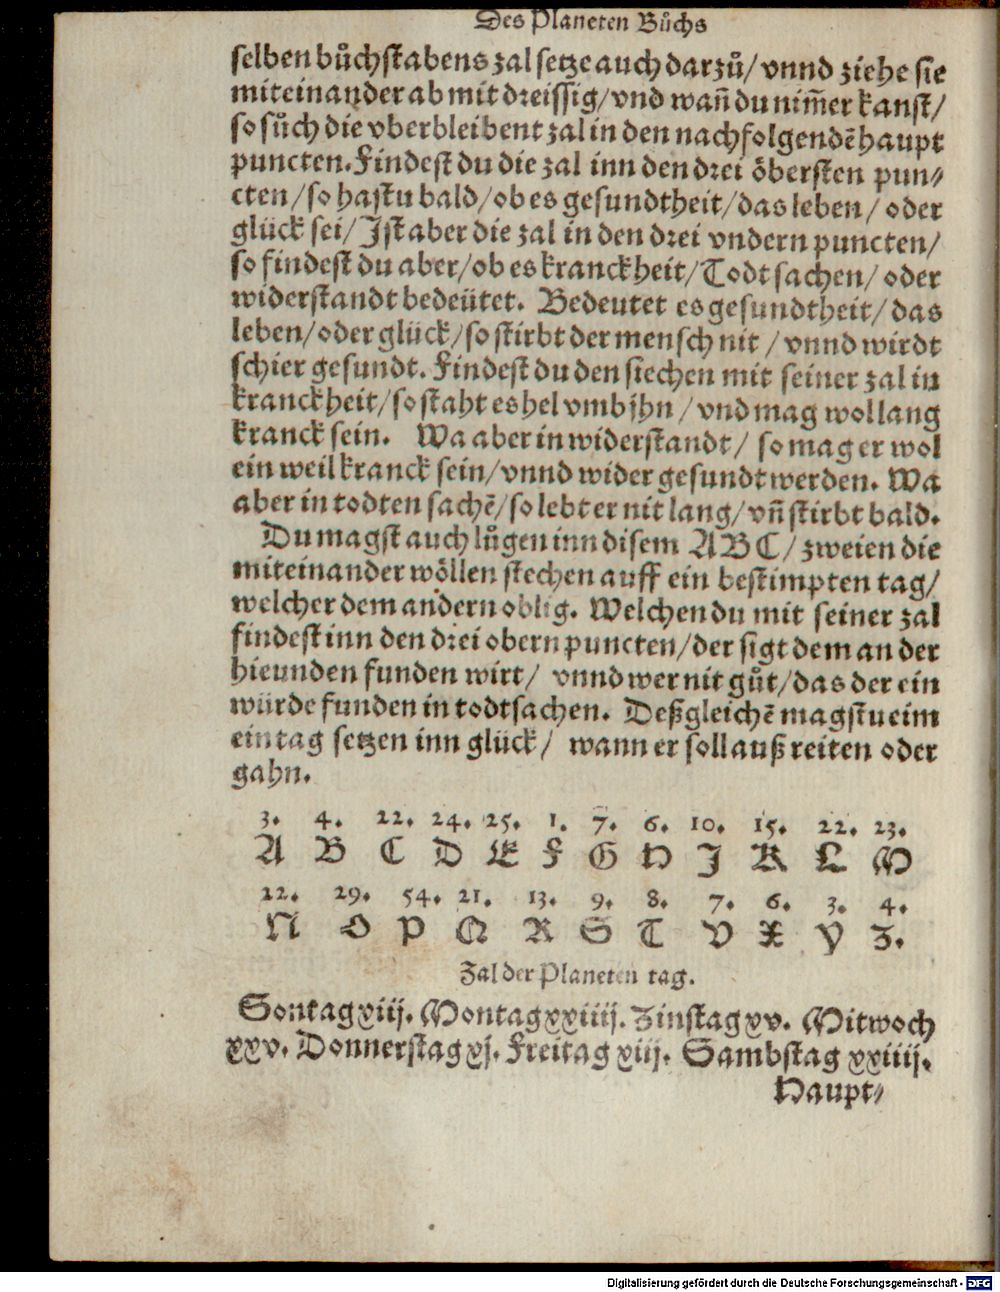 Des Planeten Bůchs
selben bůchstabens zal setze auch darzů/ vnnd ziehe sie
miteinander ab mit dreissig/ vnd wañ du nim̃er kanst/
so sůch die vberbleibent zal in den nachfolgendẽ haupt
puncten. Findest du die zal inn den drei öbersten pun⸗
cten/ so hastu bald/ ob es gesundtheit/ das leben/ oder
glück sei/ Ist aber die zal in den drei vndern puncten/
so findest du aber/ ob es kranckheit/ Todt sachen/ oder
widerstandt bedeütet. Bedeutet es gesundtheit/ das
leben/ oder glück/ so stirbt der mensch nit/ vnnd wirdt
schier gesundt. Findest du den siechen mit seiner zal in
kranckheit/ so staht es hel vmb jhn/ vnd mag wol lang
kranck sein. Wa aber in widerstandt/ so mag er wol
ein weil kranck sein/ vnnd wider gesundt werden. Wa
aber in todten sachẽ/ so lebt er nit lang/ vñ stirbt bald.
Du magst auch lůgen inn disem A B C/ zweien die
miteinander wöllen stechen auff ein bestimpten tag/
welcher dem andern oblig. Welchen du mit seiner zal
findest inn den drei obern puncten/ der sigt dem an der
hieunden funden wirt/ vnnd wer nit gůt/ das der ein
würde funden in todtsachen. Deßgleichẽ magstu eim
ein tag setzen inn glück/ wann er soll auß reiten oder
gahn.
3. 4. 22. 24. 25. 1. 7. 6. 10. 15. 22. 23.
A B C D E F G H J K L M
22. 29. 54. 21. 13. 9. 8. 7. 6. 3. 4.
N O P Q R S T V X Y Z.
Zal der Planeten tag.
Sontag xiij. Montag xxiiij. Zinstag xv. Mitwoch
xxv. Donnerstag xj. Freitag xiij. Sambstag xxiiij.
Haupt⸗
Digitalisierung gefördert durch die Deutsche Forschungsgemeinschaft - DFG